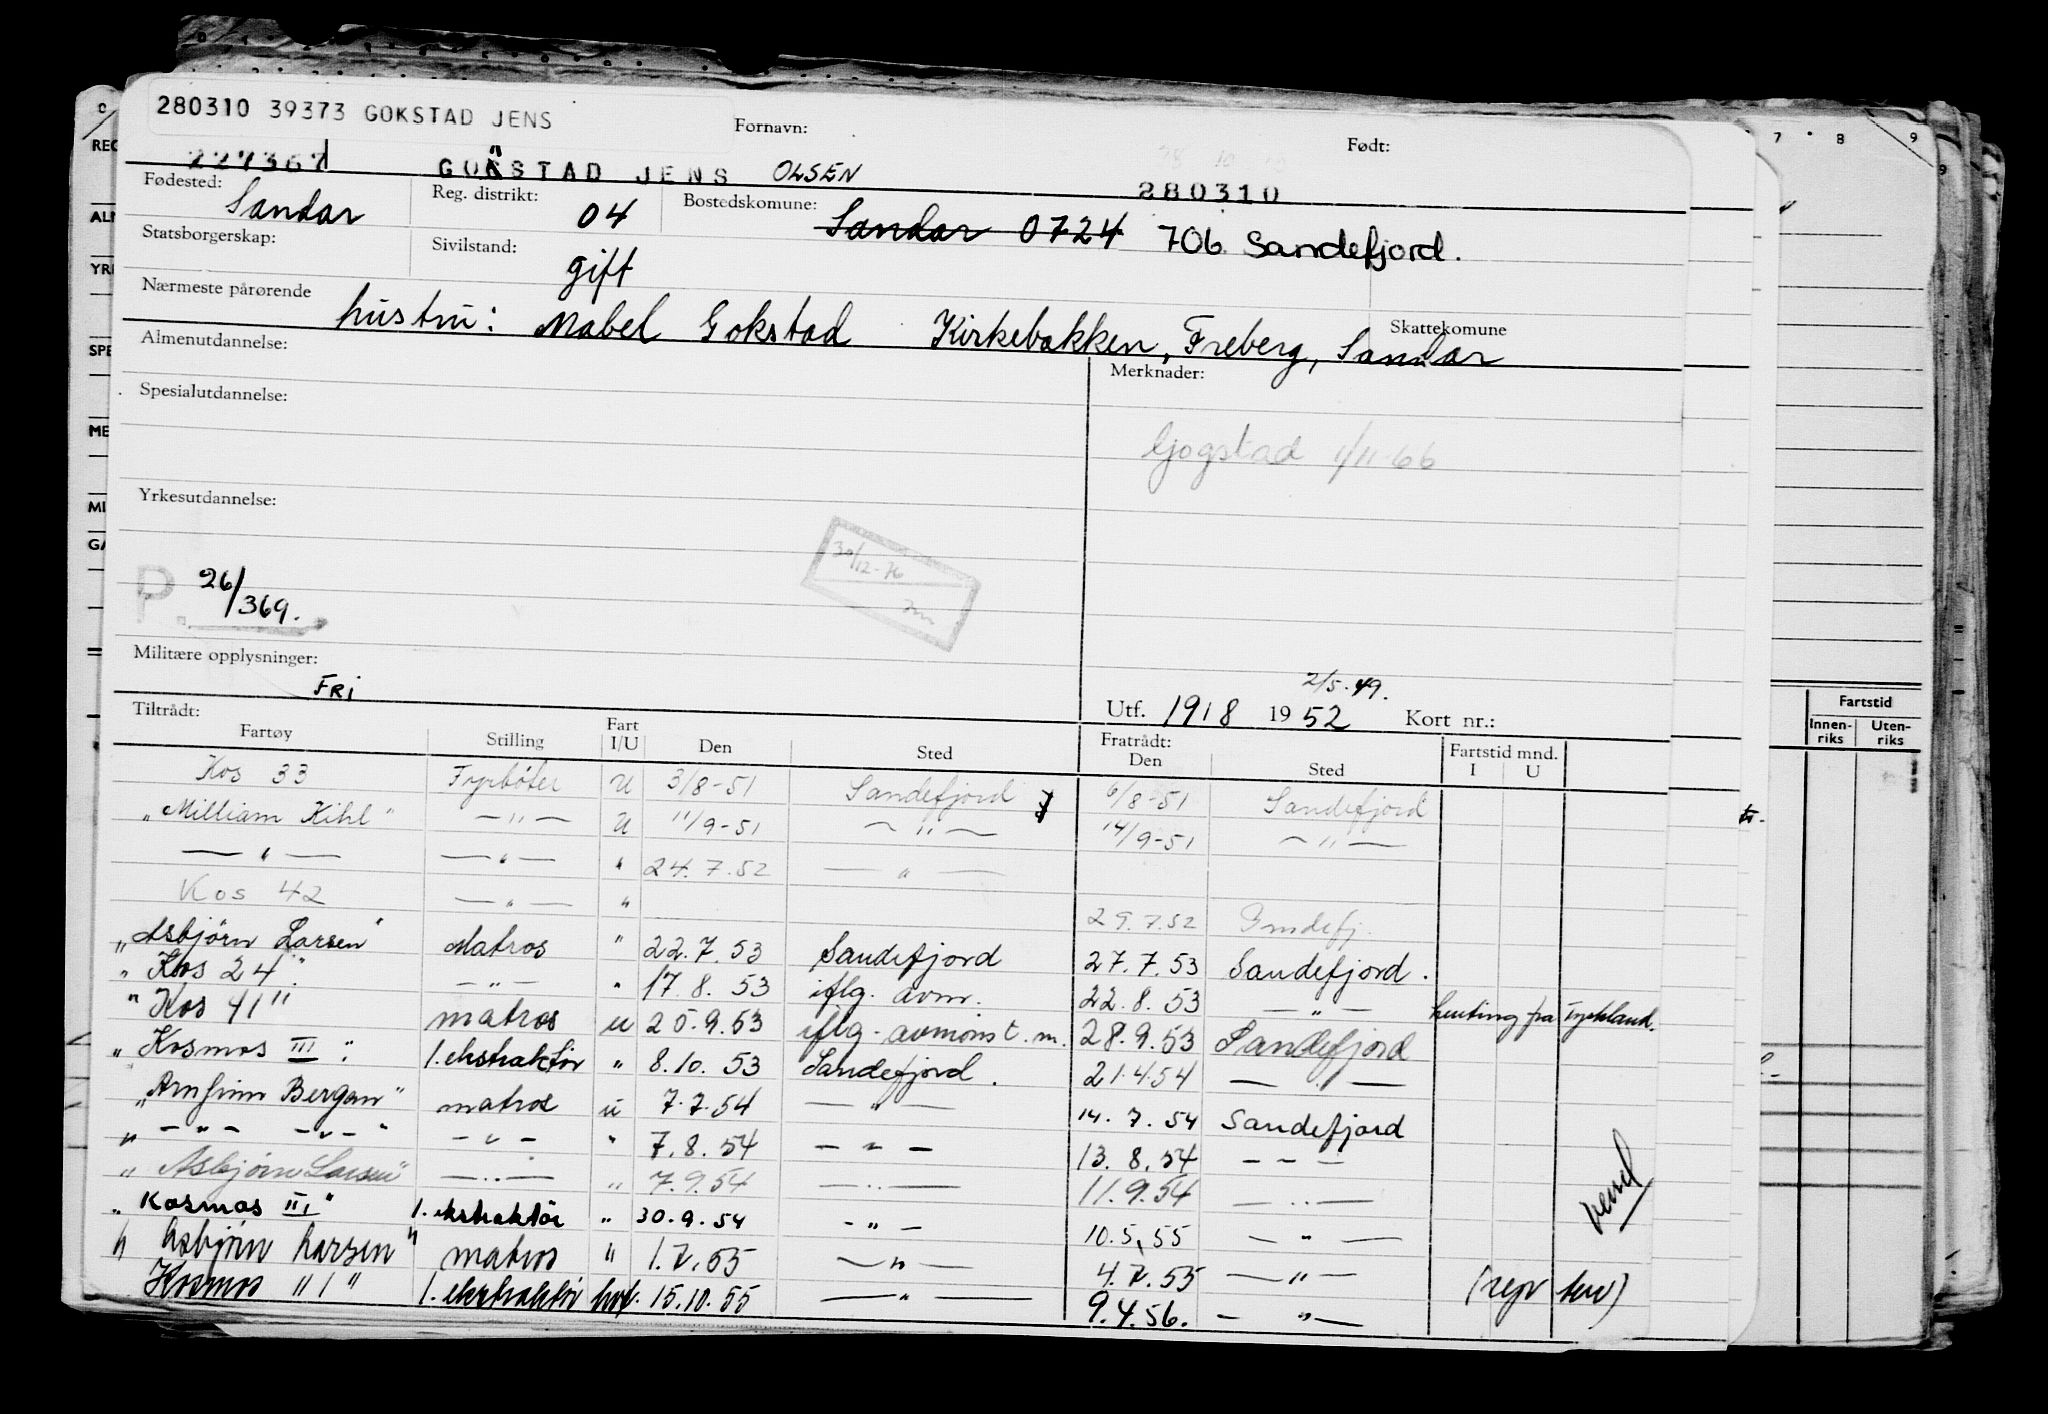 280310 39373 GOKSTAD JENS
Fornavn:
Født:
227367 GOKSTAD JENS OLSEN 280310
Fødested: Sandar
Reg. distrikt: 04
Bostedskomune: Sandar 0724 706 Sandefjord.
Statsborgerskap:
Sivilstand: gift
Nærmeste pårørende
hustru: Mabel Gokstad Kirkebakken, Freberg, Sandar
Skattekomune
Almenutdannelse:
Merknader:
Spesialutdannelse:
Gjogstad 1/11-66
Yrkesutdannelse:
30/12-76
P. 26/369.
Militære opplysninger: FRI
2/5-49.
Utf. 1918 1952 Kort nr.:
Tiltrådt: Fratrådt:
Fartøy Stilling Fart I/U Den Sted Den Sted Fartstid mnd. I U
Kos 33 Fyrbøter U 3/8-51 Sandefjord 6/8-51 Sandefjord
"Milliam Kihl" —"— U 11/9-51 —"— 14/9-51 —"—
—"— —"— " 24.7.52 —"—
Kos 42 —"— " 29.7.52
"Asbjørn Larsen" Matros " 22.7.53 Sandefjord 27.7.53 Sandefjord.
"Kos 24" —"— " 17.8.53 iflg. avm. 22.8.53 —"— henting fra Tyskland.
"Kos 41" matros u 25.9.53 iflg. avmønst. m. 28.9.53 Sandefjord
"Kosmos III" 1. ekstraktør " 8.10.53 Sandefjord. 21.4.54 —"—
"Arnfinn Bergan" matros u 7.7.54 —"— 14.7.54 Sandefjord
"—"— —"—" —"— " 7.8.54 —"— 13.8.54 —"—
"Asbjørn Larsen" —"— " 7.9.54 —"— 11.9.54 —"—
"Kosmos III" 1. ekstraktør " 30.9.54 —"— 10.5.55 —"—
vend
"Asbjørn Larsen" matros " 1.7.55 —"— 4.7.55 —"—
Kosmos "1" 1. ekstraktør hvf. 15.10.55 —"— 9.4.56. —"—
7 8 9
Fartstid
Innenriks Utenriks